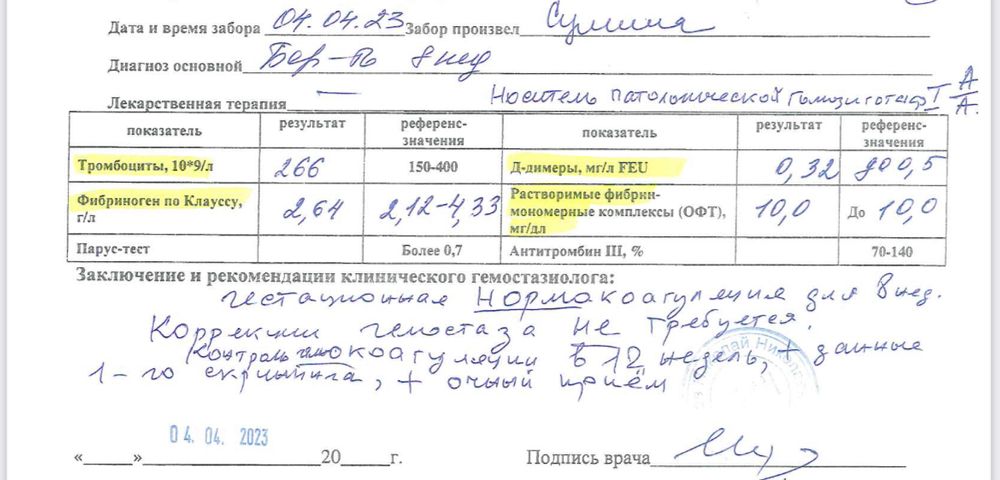 Дата и время забора 04.04.23 Забор произвел
Диагноз основной Бер-ть 8 нед
Лекарственная терапия — Носитель патологической Гомозиготы A/A
показатель результат референс-значения показатель результат референс-значения
Тромбоциты, 10*9/л 266 150-400 Д-димеры, мг/л FEU 0,32 до 0,5
Фибриноген по Клауссу, г/л 2,64 2,12-4,33 Растворимые фибрин-мономерные комплексы (ОФТ), мг/дл 10,0 До 10,0
Парус-тест Более 0,7 Антитромбин III, % 70-140
Заключение и рекомендации клинического гемостазиолога:
гестационная нормокоагуляция для 8 нед.
Коррекции гемостаза не требуется.
Контроль гемокоагуляции в 12 недель, + данные
1-го скрининга, + очный приём
04. 04. 2023
«_____»__________________20_____г. Подпись врача